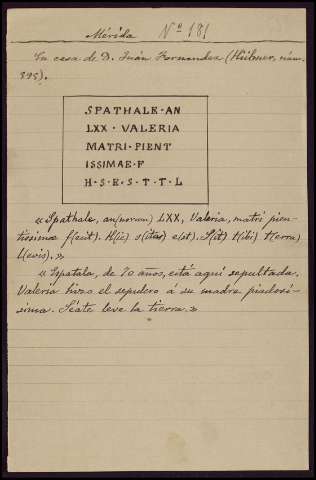 Mérida Nº 181
En casa de D. Juán Fernandez (Hübner, núm.
595).
SPATHALE·AN
LXX·VALERIA
MATRI·PIENT
ISSIMAE·F
H·S·E·S·T·T·L
«Spathale, an(norum) LXX, Valeria, matri pien-
tissimæ f(ecit). H(ic) s(ita) e(st). S(it) t(ibi) t(erra)
l(evis).»
«Espatala, de 70 años, está aquí sepultada.
Valeria hizo el sepulcro á su madre piadosí-
sima. Séate leve la tierra.»